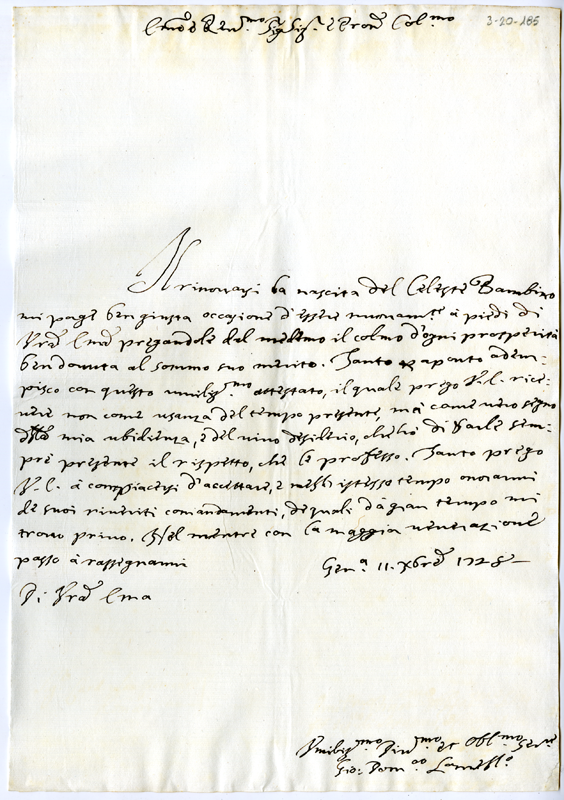 3-20-185
Em.o e Rev.mo Sig.r Sig.r e Pron Col.mo
Il rinovarsi la nascita del Celeste Bambino
mi porge ben giusta occasione d'essere nuovam.te à piedi di
Vrã Emã pregandole dal medemo il colmo d'ogni prosperità
ben dovuta al sommo suo merito. Tanto aponto adem-
pisco con questo umilis.mo attestato, il quale prego V.E. rice-
vere non come usanza del tempo presente, mà come vero segno
della mia ubidienza, e del vivo desiderio, che hò di farle sem-
pre presente il rispetto, che le professo. Tanto prego
V.E. à compiacersi d'accettare, e nello istesso tempo onorarmi
de suoi riveriti comandamenti, de quali dà gran tempo mi
trovo privo. Nel mentre con la maggior venerazione
passo à rassegnarmi
Gen.a 11. Xbrẽ 1728
Di Vrã Emã
Umilis.mo Div.mo et Obl.mo Ser.re
Gio: Dom.co